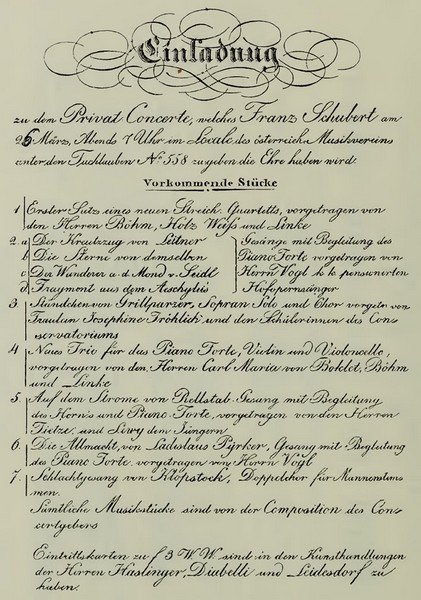 Einladung
zu dem Privat Concerte, welches Franz Schubert am
26 März, Abends 7 Uhr im Locale des österreich. Musikvereins
unter den Tuchlauben No. 558 zu geben die Ehre haben wird.
Vorkommende Stücke
1 Erster Satz eines neuen Streich-Quartetts, vorgetragen von
den Herren Böhm, Holz, Weiß und Linke
2. a Der Kreutzzug von Leitner
b Die Sterne von demselben
c Der Wanderer a. d. Mond v. Seidl
d Fragment aus dem Aeschylus
Gesänge mit Begleitung des
Piano Forte vorgetragen von
Herrn Vogl k. k. pensionirten
Hofopernsänger
3. Ständchen von Grillparzer, Sopran Solo und Chor vorgetr. von
Fräulein Josephine Fröhlich und den Schülerinnen des Con-
servatoriums
4 Neues Trio für das Piano Forte, Violin und Violoncelle,
vorgetragen von den Herren Carl Maria von Boklet, Böhm
und Linke
5. Auf dem Strome von Rellstab. Gesang mit Begleitung
des Horns und Piano-Forte, vorgetragen von den Herren
Tietze, und Lewy dem Jüngern
6. Die Allmacht, von Ladislaus Pyrker, Gesang mit Begleitung
des Piano Forte, vorgetragen von Herrn Vogl
7. Schlachtgesang von Klopstock, Doppelchor für Männerstim-
men.
Sämtliche Musikstücke sind von der Composition des Con-
certgebers
Eintrittskarten zu f 3 W. W. sind in den Kunsthandlungen
der Herren Haslinger, Diabelli und Leidesdorf zu
haben.